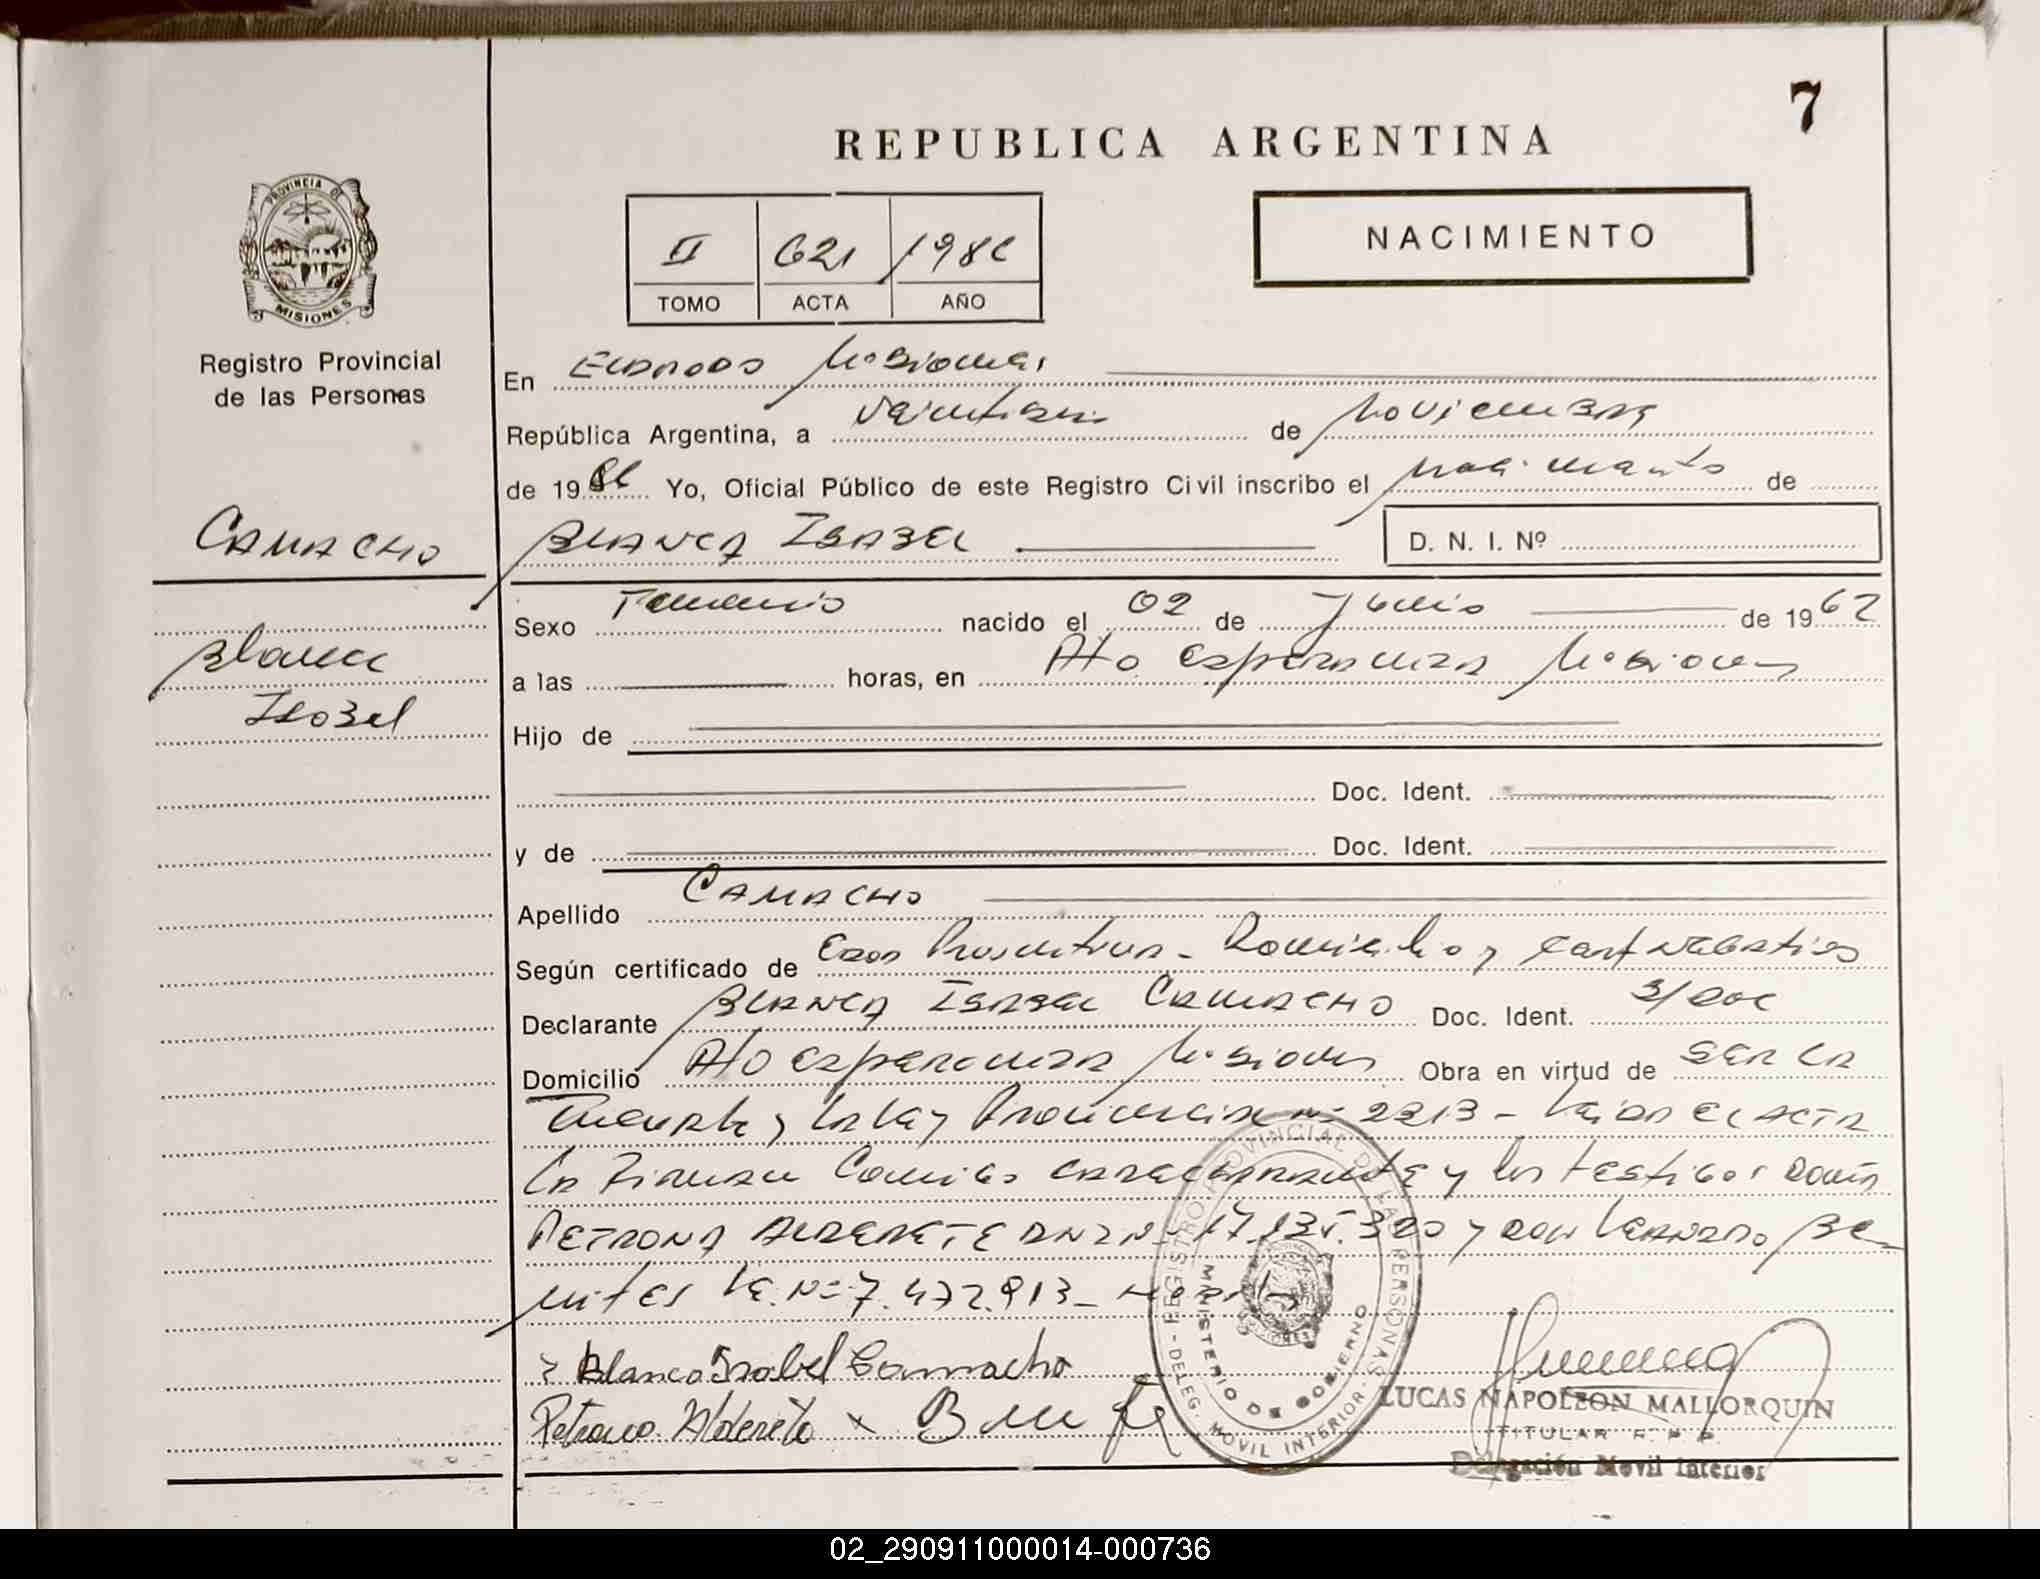 7
REPUBLICA ARGENTINA
PROVINCIA DE
MISIONES
Registro Provincial
de las Personas
NACIMIENTO
II 621 1986
TOMO ACTA AÑO
En Eldorado Misiones
República Argentina, a veintiseis de Noviembre
de 1986 Yo, Oficial Público de este Registro Civil inscribo el Nacimiento de
CAMACHO
BLANCA ISABEL D. N. I. Nº
Blanca
Isabel
Sexo Femenino nacido el 02 de Junio de 1962
a las horas, en Pto Esperanza Misiones
Hijo de
Doc. Ident.
y de Doc. Ident.
Apellido CAMACHO
Según certificado de Edad Presuntiva - Domicilio y Cert Negativo
Declarante BLANCA ISABEL CAMACHO Doc. Ident. S/Doc
Domicilio Pto Esperanza Misiones Obra en virtud de SER LA
y la Ley Provincial Nº 2213 - Leida el ACTA
La Firman Conmigo y los testigos Doña
PETRONA ALDERETE DNI Nº 17.135.320 y don Be-
nites Le. Nº 7.472.913 -
Blanca Isabel Camacho
Petrona Alderete x
REGISTRO PROVINCIAL DE LAS PERSONAS
MINISTERIO DE GOBIERNO
DELEG. MOVIL INTERIOR
LUCAS NAPOLEON MALLORQUIN
TITULAR R. P. P.
Delegación Movil Interior
02_290911000014-000736